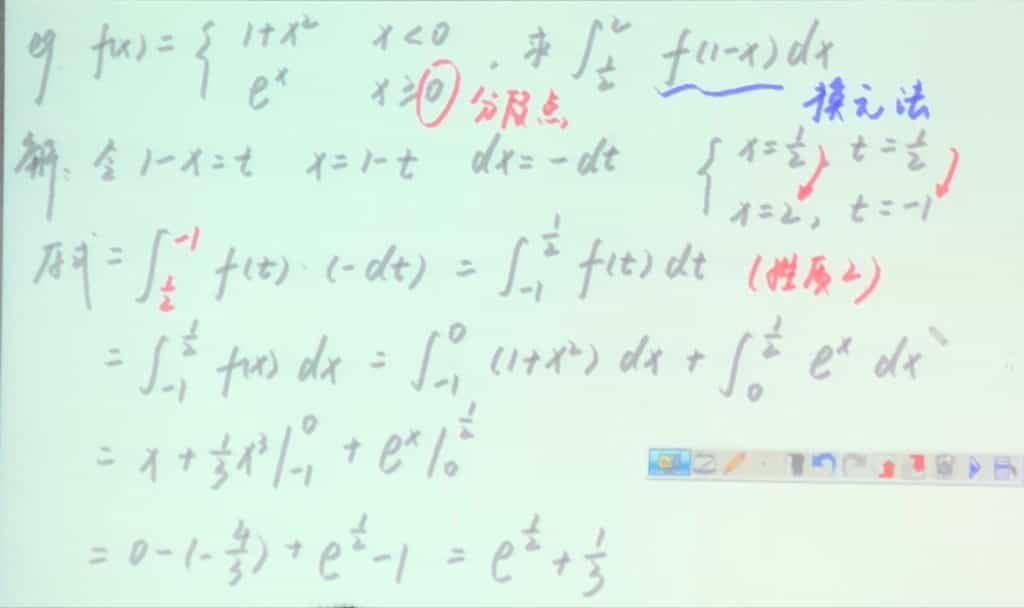 例 f(x) = { 1+x² x<0 . 求 ∫_{1/2}^{2} f(1-x)dx
e^x x≥0 分段点 换元法
解: 令 1-x=t x=1-t dx=-dt { x=1/2, t=1/2
x=2, t=-1
原式 = ∫_{1/2}^{-1} f(t)·(-dt) = ∫_{-1}^{1/2} f(t)dt (性质2)
= ∫_{-1}^{1/2} f(x)dx = ∫_{-1}^{0} (1+x²)dx + ∫_{0}^{1/2} e^x dx
= x + 1/3 x³ |_{-1}^{0} + e^x |_{0}^{1/2}
= 0-(-4/3) + e^{1/2} - 1 = e^{1/2} + 1/3